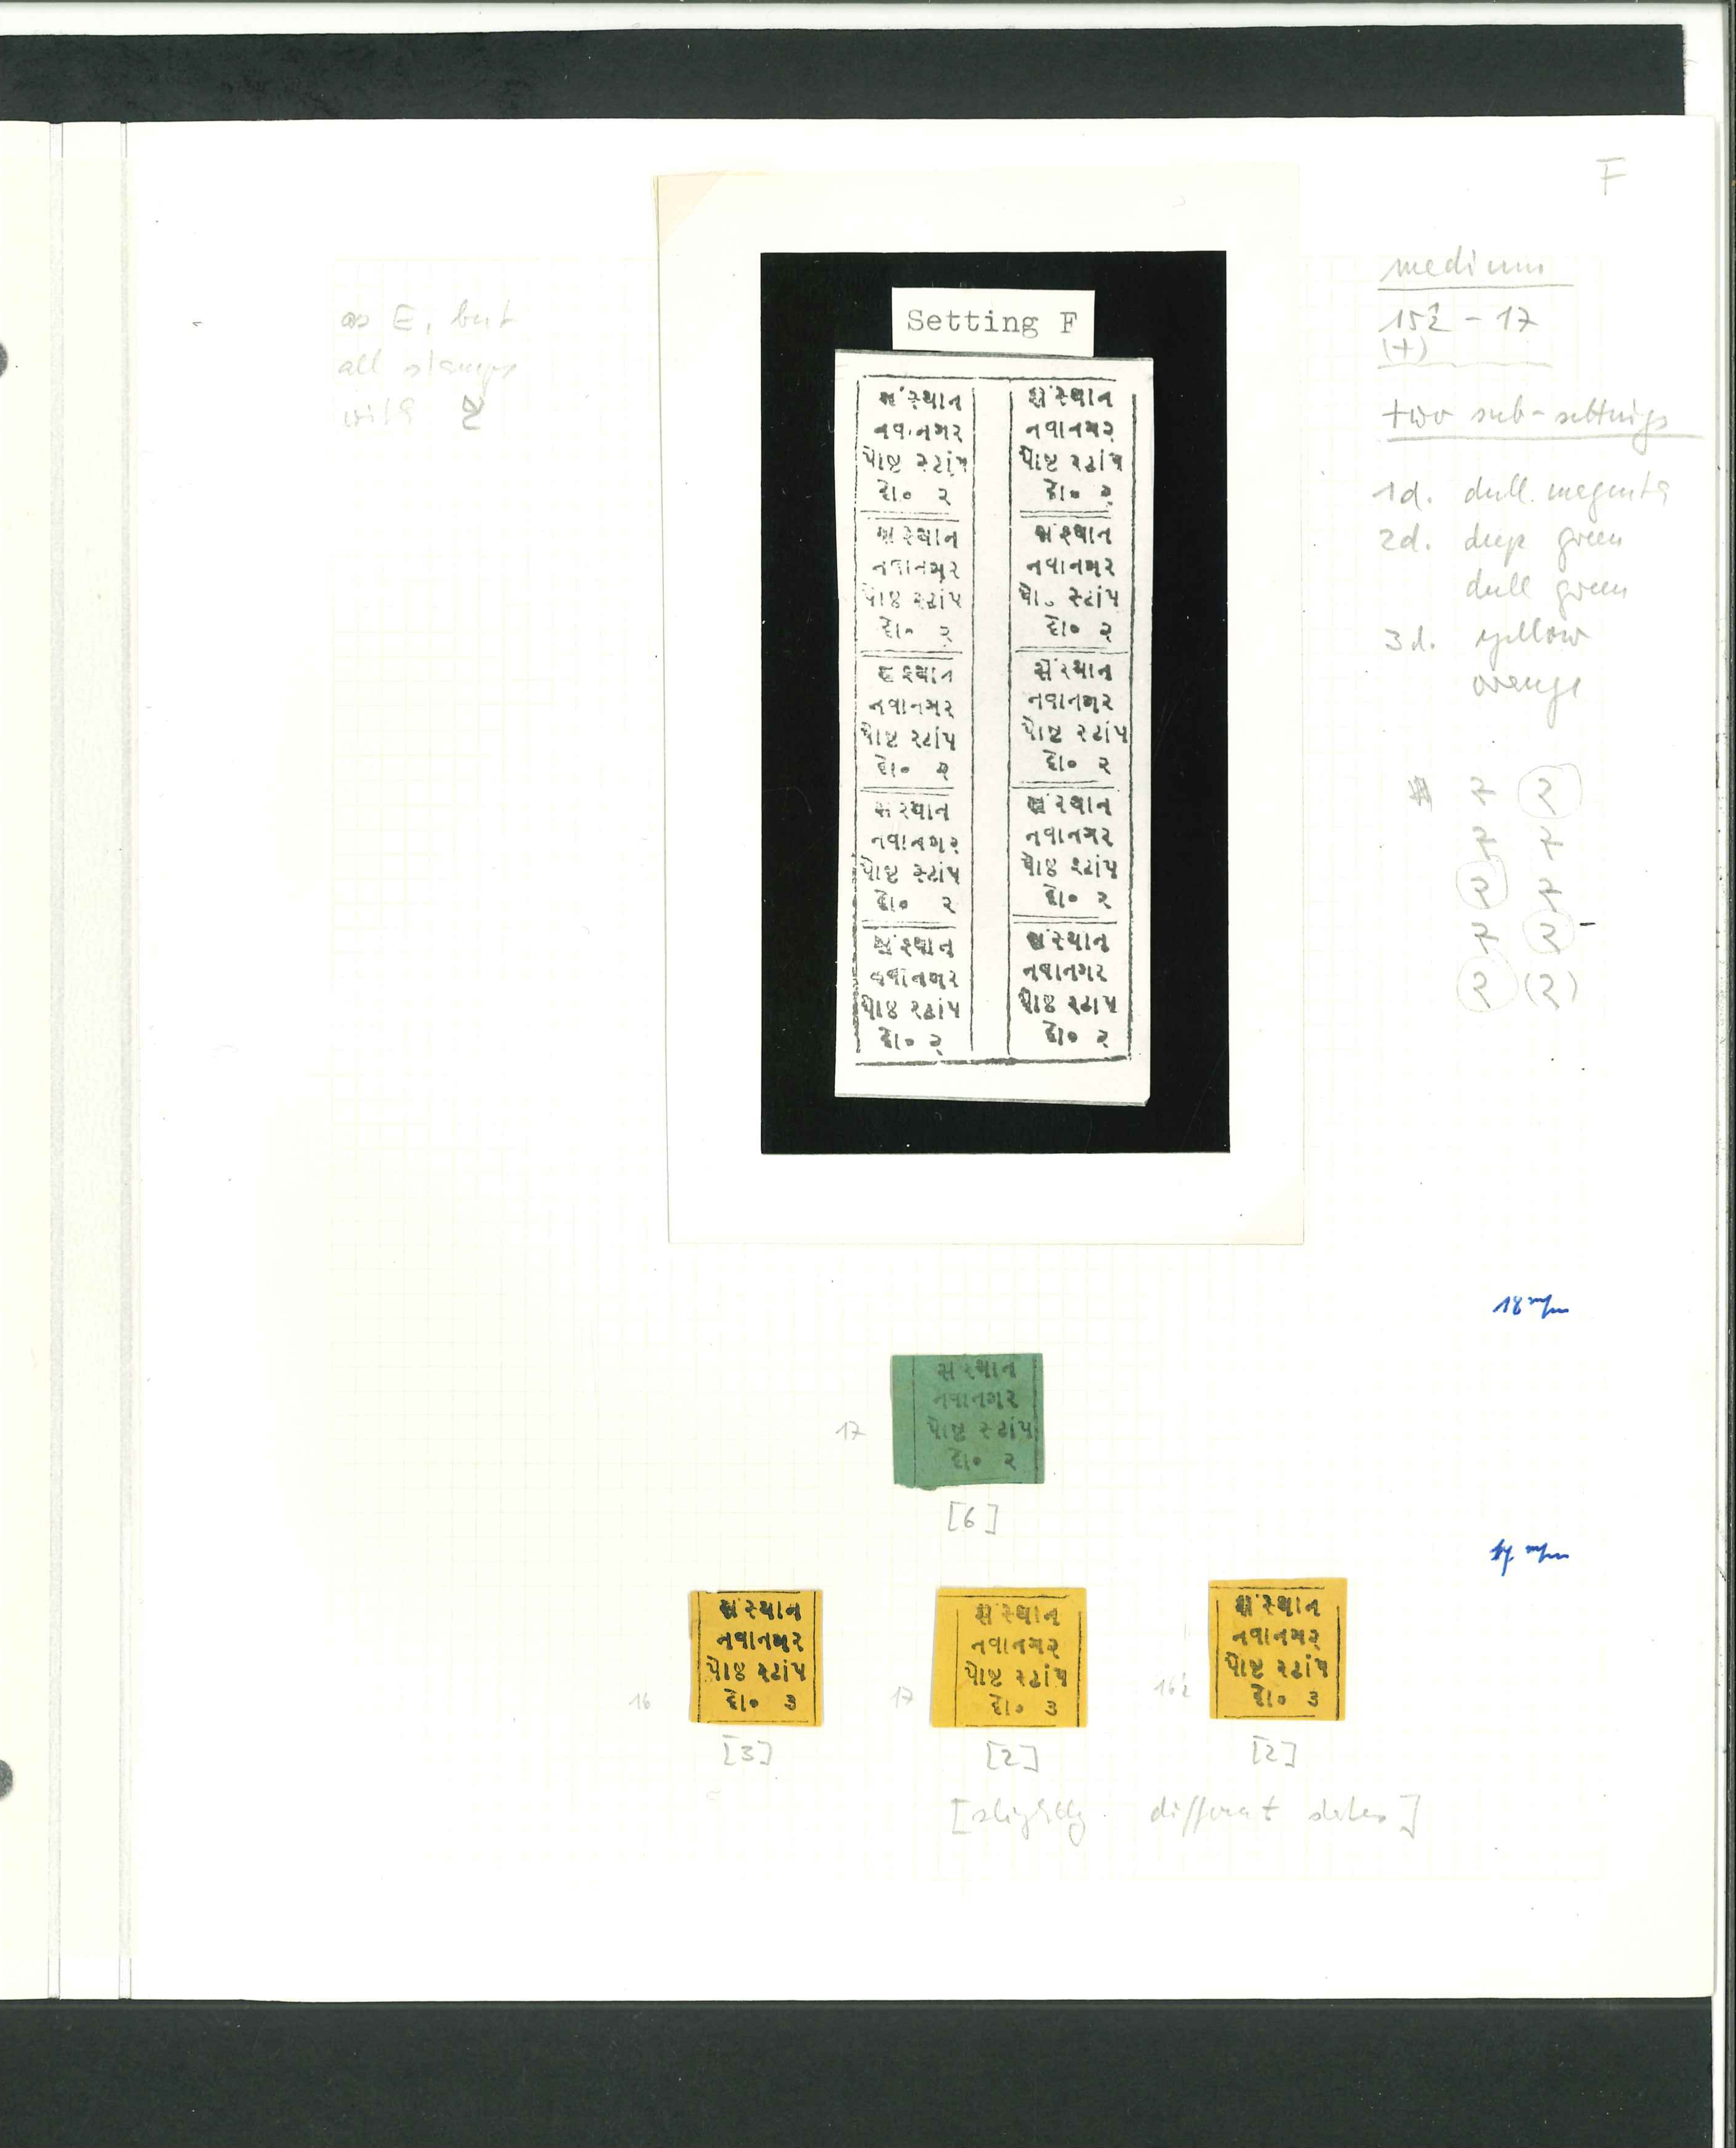 F
medium
15½ - 17
(+)
two sub-settings
1d. dull magenta
2d. deep green
dull green
3d. yellow
orange
as E, but
all stamps
with
Setting F
સંસ્થાન
નવાનગર
પોષ્ટ સ્ટાંપ
દો૦ ૨
સંસ્થાન
નવાનગર
પોષ્ટ સ્ટાંપ
દો૦ ૨
સંસ્થાન
નવાનગર
પોષ્ટ સ્ટાંપ
દો૦ ૨
સંસ્થાન
નવાનગર
પોષ્ટ સ્ટાંપ
દો૦ ૨
સંસ્થાન
નવાનગર
પોષ્ટ સ્ટાંપ
દો૦ ૨
સંસ્થાન
નવાનગર
પોષ્ટ સ્ટાંપ
દો૦ ૨
સંસ્થાન
નવાનગર
પો૦ સ્ટાંપ
દો૦ ૨
સંસ્થાન
નવાનગર
પોષ્ટ સ્ટાંપ
દો૦ ૨
સંસ્થાન
નવાનગર
પોષ્ટ સ્ટાંપ
દો૦ ૨
સંસ્થાન
નવાનગર
પોષ્ટ સ્ટાંપ
દો૦ ૨
18
17
સંસ્થાન
નવાનગર
પોષ્ટ સ્ટાંપ
દો૦ ૨
[6]
16
સંસ્થાન
નવાનગર
પોષ્ટ સ્ટાંપ
દો૦ ૩
[3]
17
સંસ્થાન
નવાનગર
પોષ્ટ સ્ટાંપ
દો૦ ૩
[2]
16½
સંસ્થાન
નવાનગર
પોષ્ટ સ્ટાંપ
દો૦ ૩
[2]
[slightly different states]